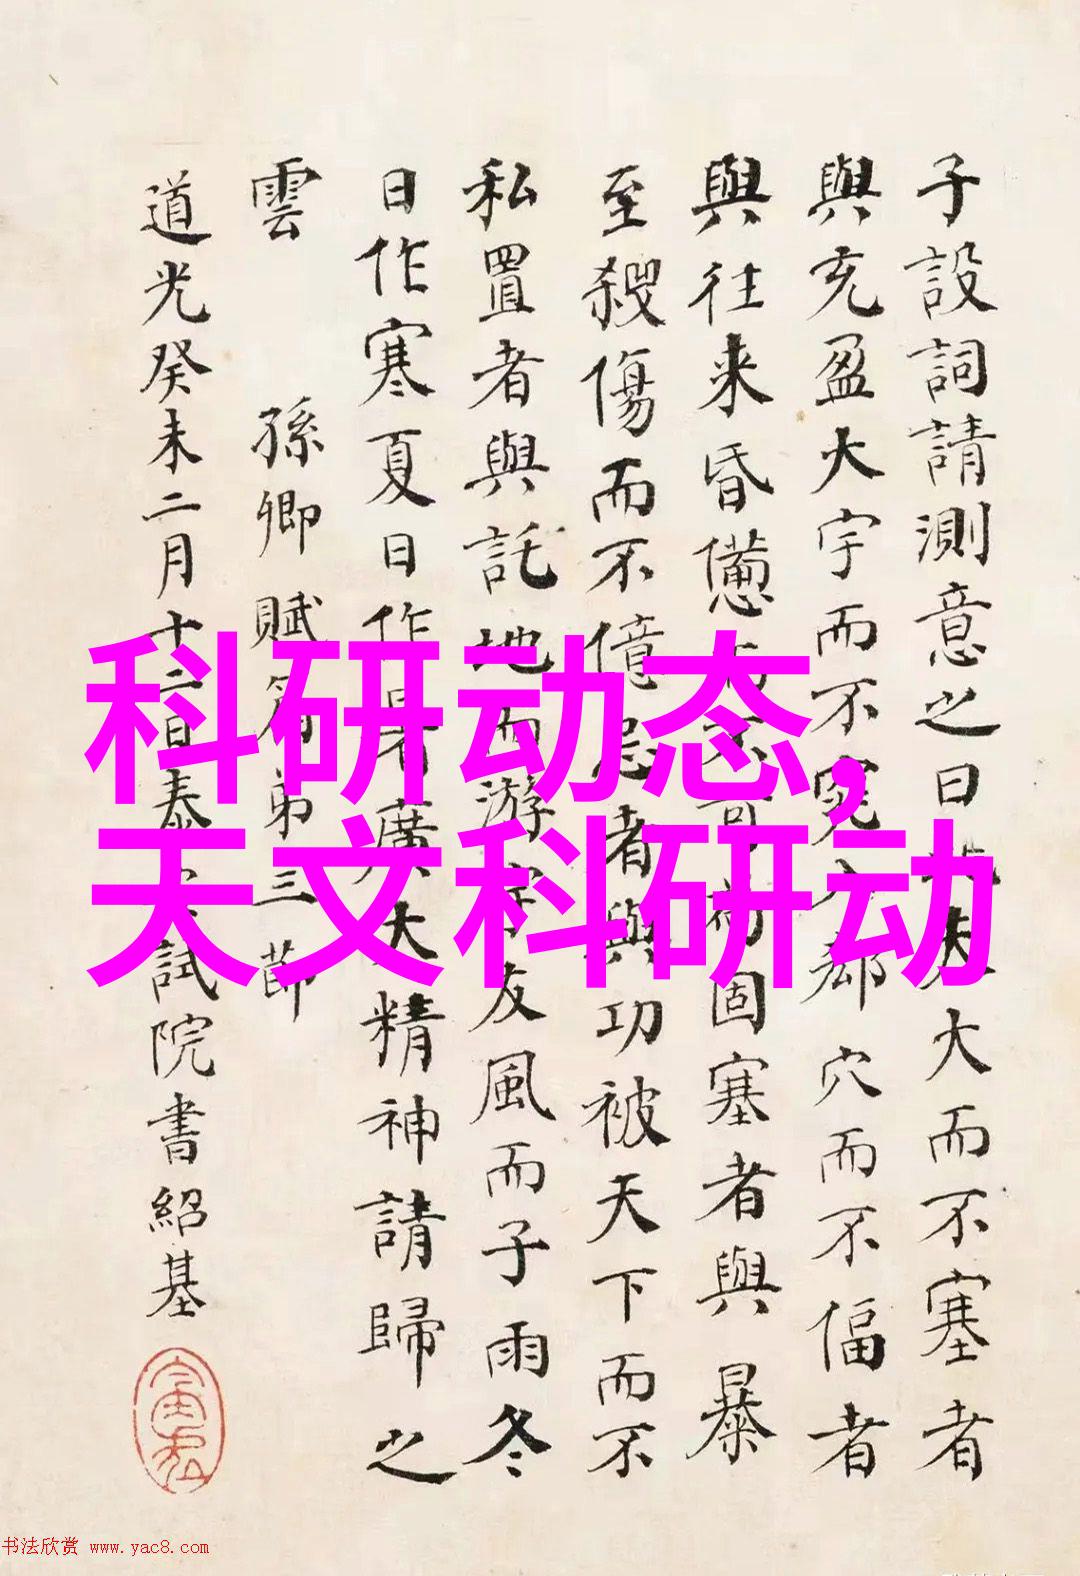 科研动态,
天文科研动
子設詞請測意之曰此夫大而不塞者
與充盈大宇而不窕入郄穴而不偪者
與往来昏憊而不可為固塞者與暴
至殺傷而不億忌者與功被天下而不
私置者與託地而游宇友風而子雨冬
日作寒夏日作暑廣大精神請歸之
雲 孫卿賦篇弟三節
道光癸未二月十二日泰安試院書紹基
书法欣赏 www.yac8.com